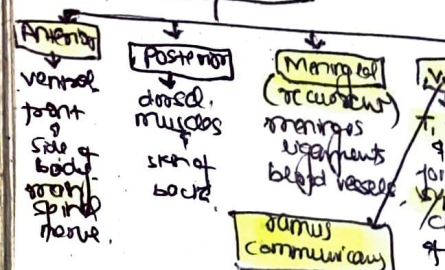 Anterior
ventral
front
&
side of
body.
many
spinal
nerve.
Posterior
dorsal,
muscles
&
skin of
back
Meningeal
(recurrent)
meninges
ligaments
blood vessels
ramus
communicans